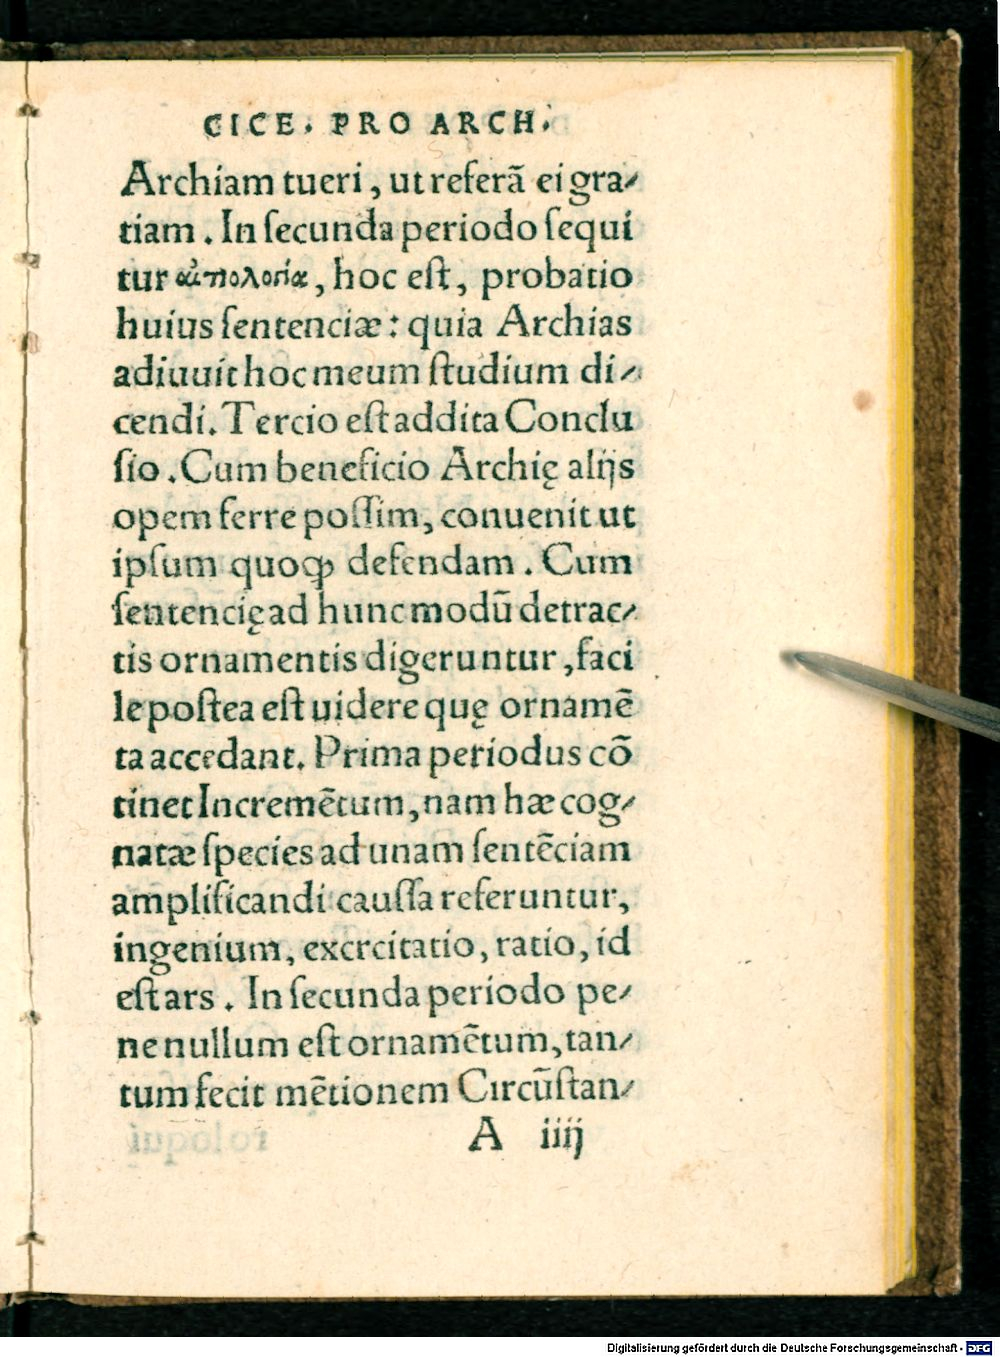 CICE. PRO ARCH.
Archiam tueri, ut referā ei gra⸗
tiam. In ſecunda periodo ſequi
tur αἰτιολογία, hoc eſt, probatio
huius ſentenciæ: quia Archias
adiuuit hoc meum ſtudium di⸗
cendi. Tercio eſt addita Conclu
ſio. Cum beneficio Archię alijs
opem ferre poſſim, conuenit ut
ipſum quoqꝫ defendam. Cum
ſentencię ad hunc modū detrac⸗
tis ornamentis digeruntur, faci
le poſtea eſt uidere quę ornamē
ta accedant. Prima periodus cō
tinet Incremētum, nam hæ cog⸗
natæ ſpecies ad unam ſentēciam
amplificandi cauſſa referuntur,
ingenium, exercitatio, ratio, id
eſt ars. In ſecunda periodo pe⸗
ne nullum eſt ornamētum, tan⸗
tum fecit mētionem Circūſtan⸗
A iiij
Digitalisierung gefördert durch die Deutsche Forschungsgemeinschaft - DFG